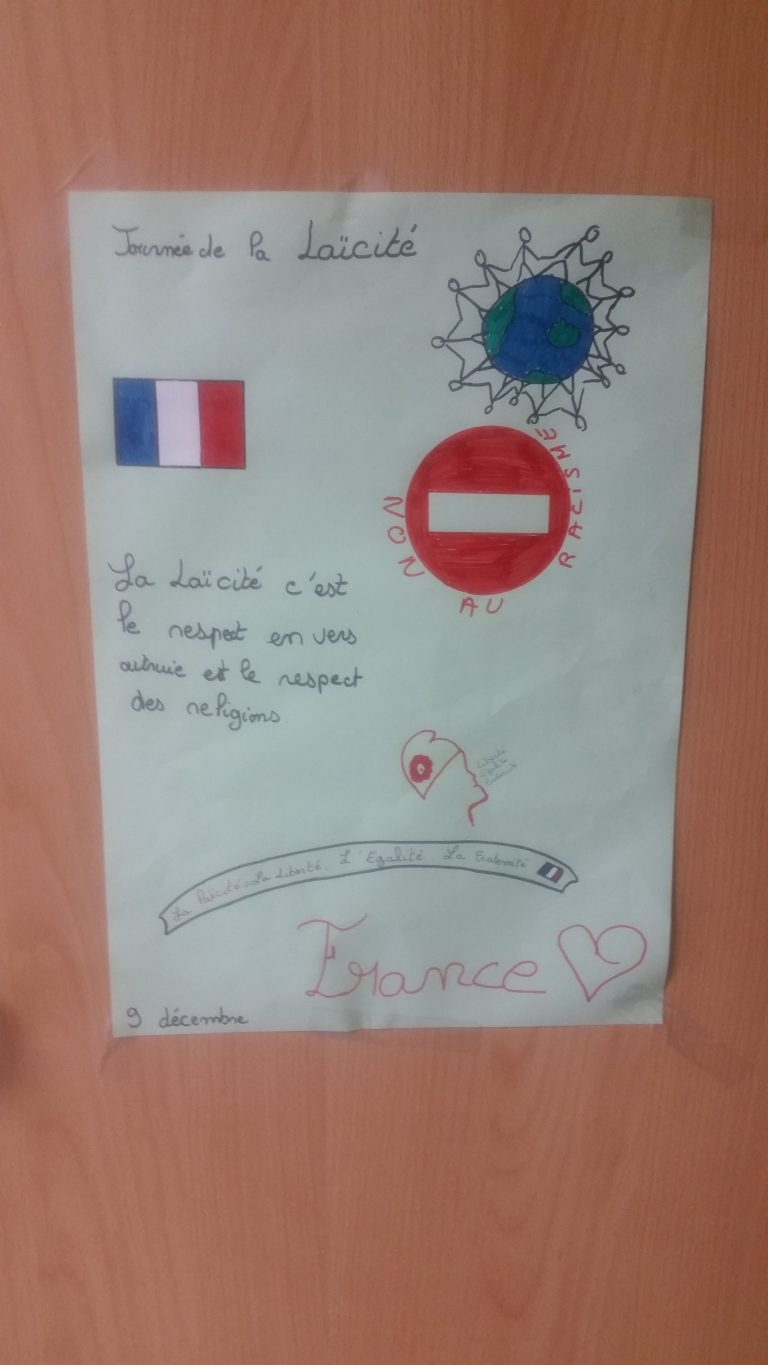 Journée de la Laïcité
NON AU RACISME
La Laïcité c'est
le respect en vers
autruie et le respect
des religions
Liberté
Egalité
La Laïcité = La Liberté. L'Egalité La Fraternité
France
9 décembre